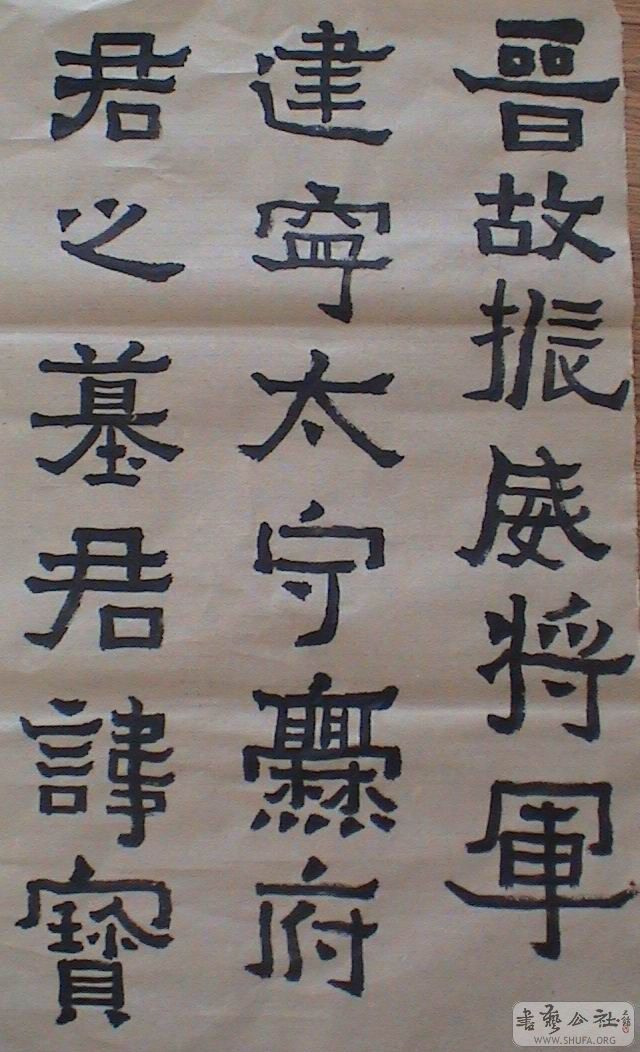 晉故振威將軍
建寧太守爨府
君之墓君諱寶
書藝公社
WWW.SHUFA.ORG